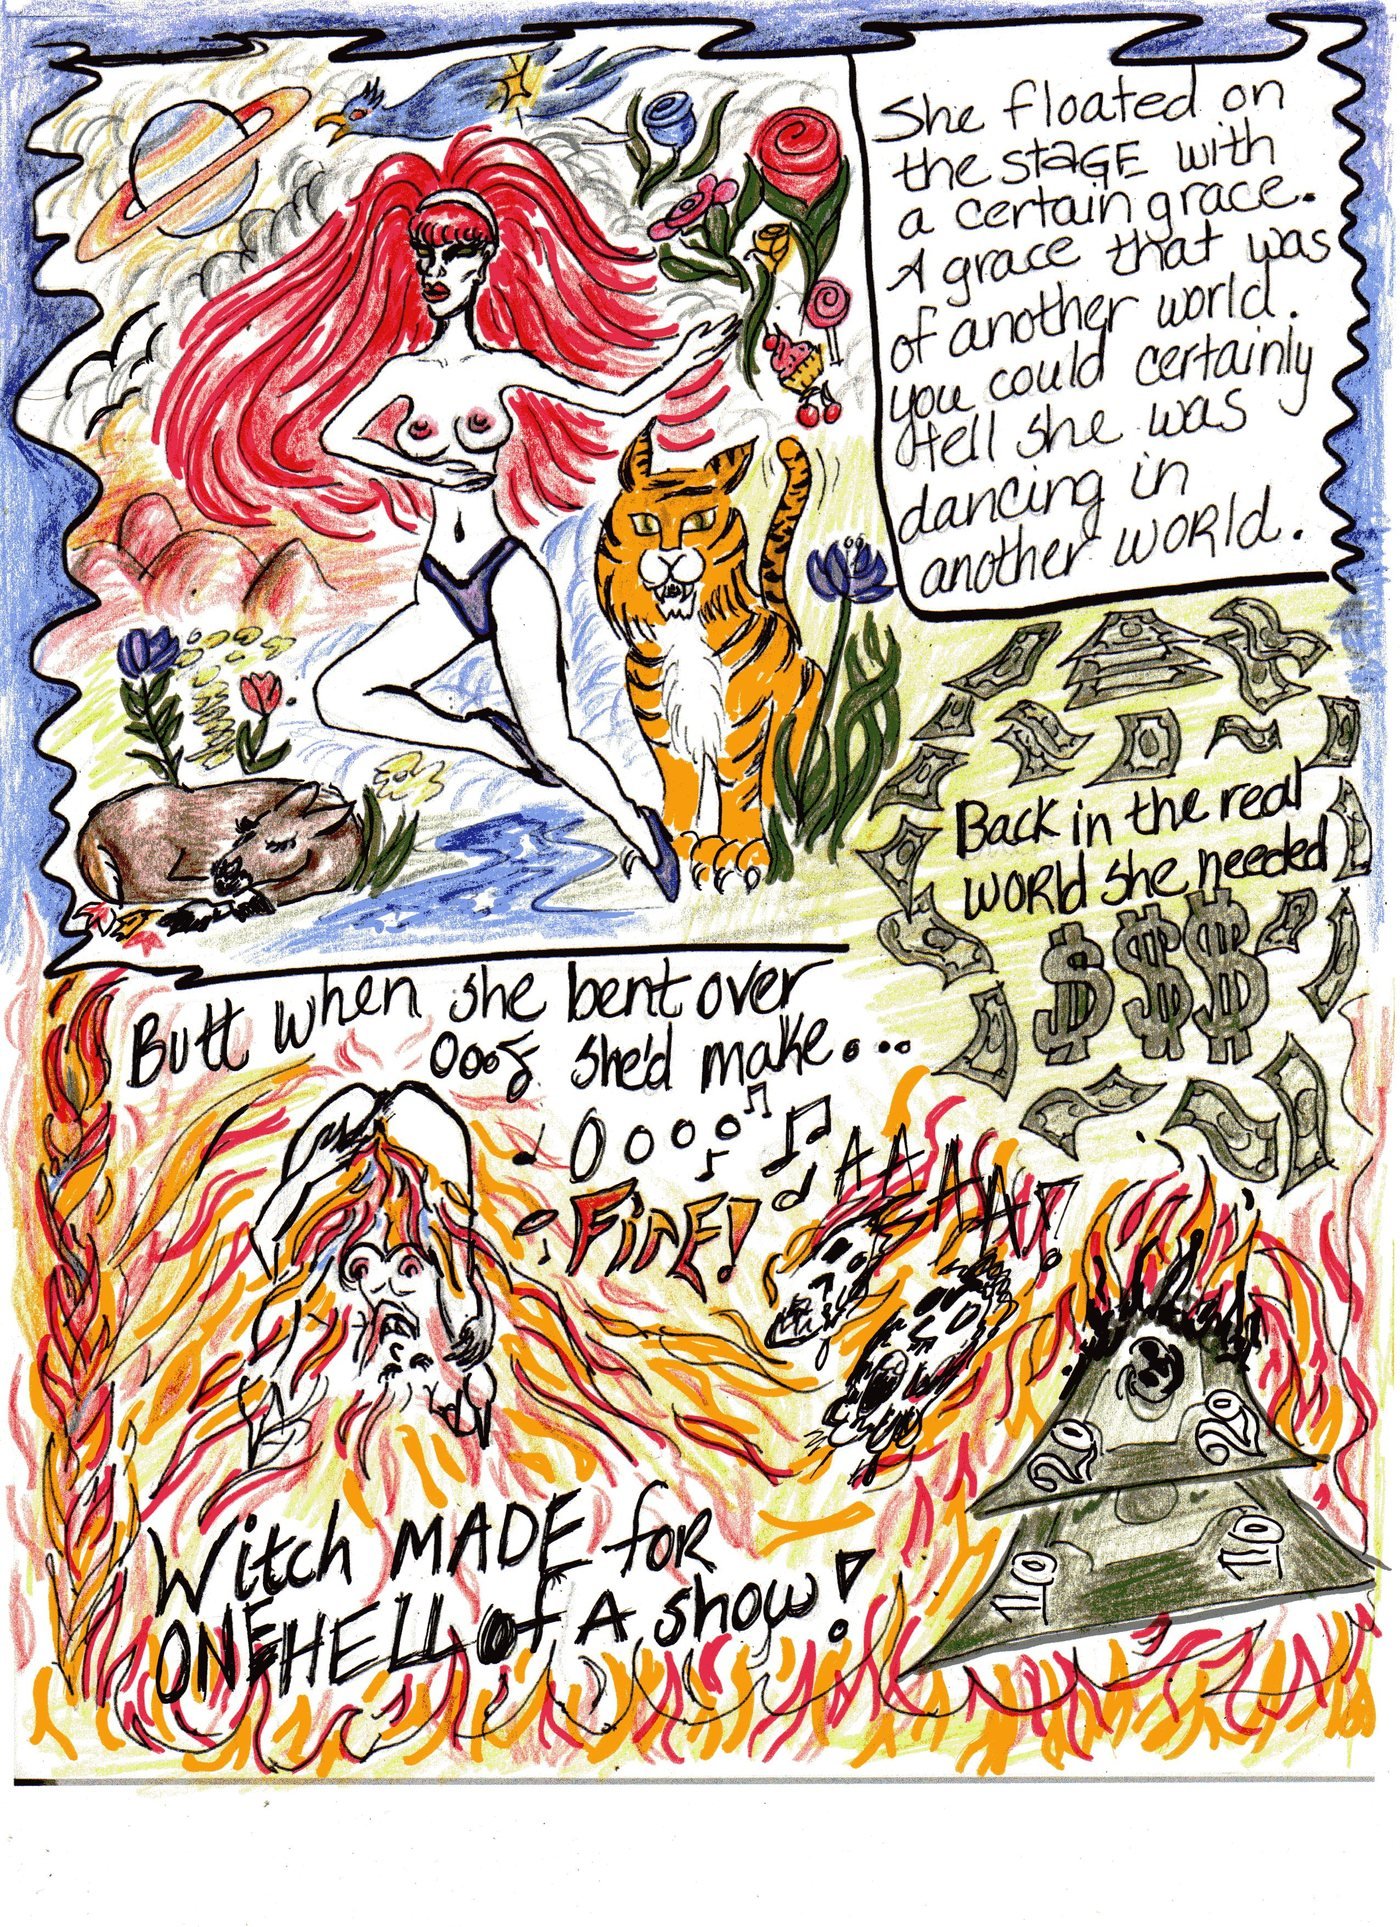 She floated on
the STAGE with
a certain grace.
A grace that was
of another world.
you could certainly
tell she was
dancing in
another WORLD.
Back in the real
WORLD she needed
$$$
Butt when she bent over
Oooz she'd make...
Oooo
FIRE!
AAAAAAA!
Witch MADE for
ONE HELL of A show!
20 20
10 10